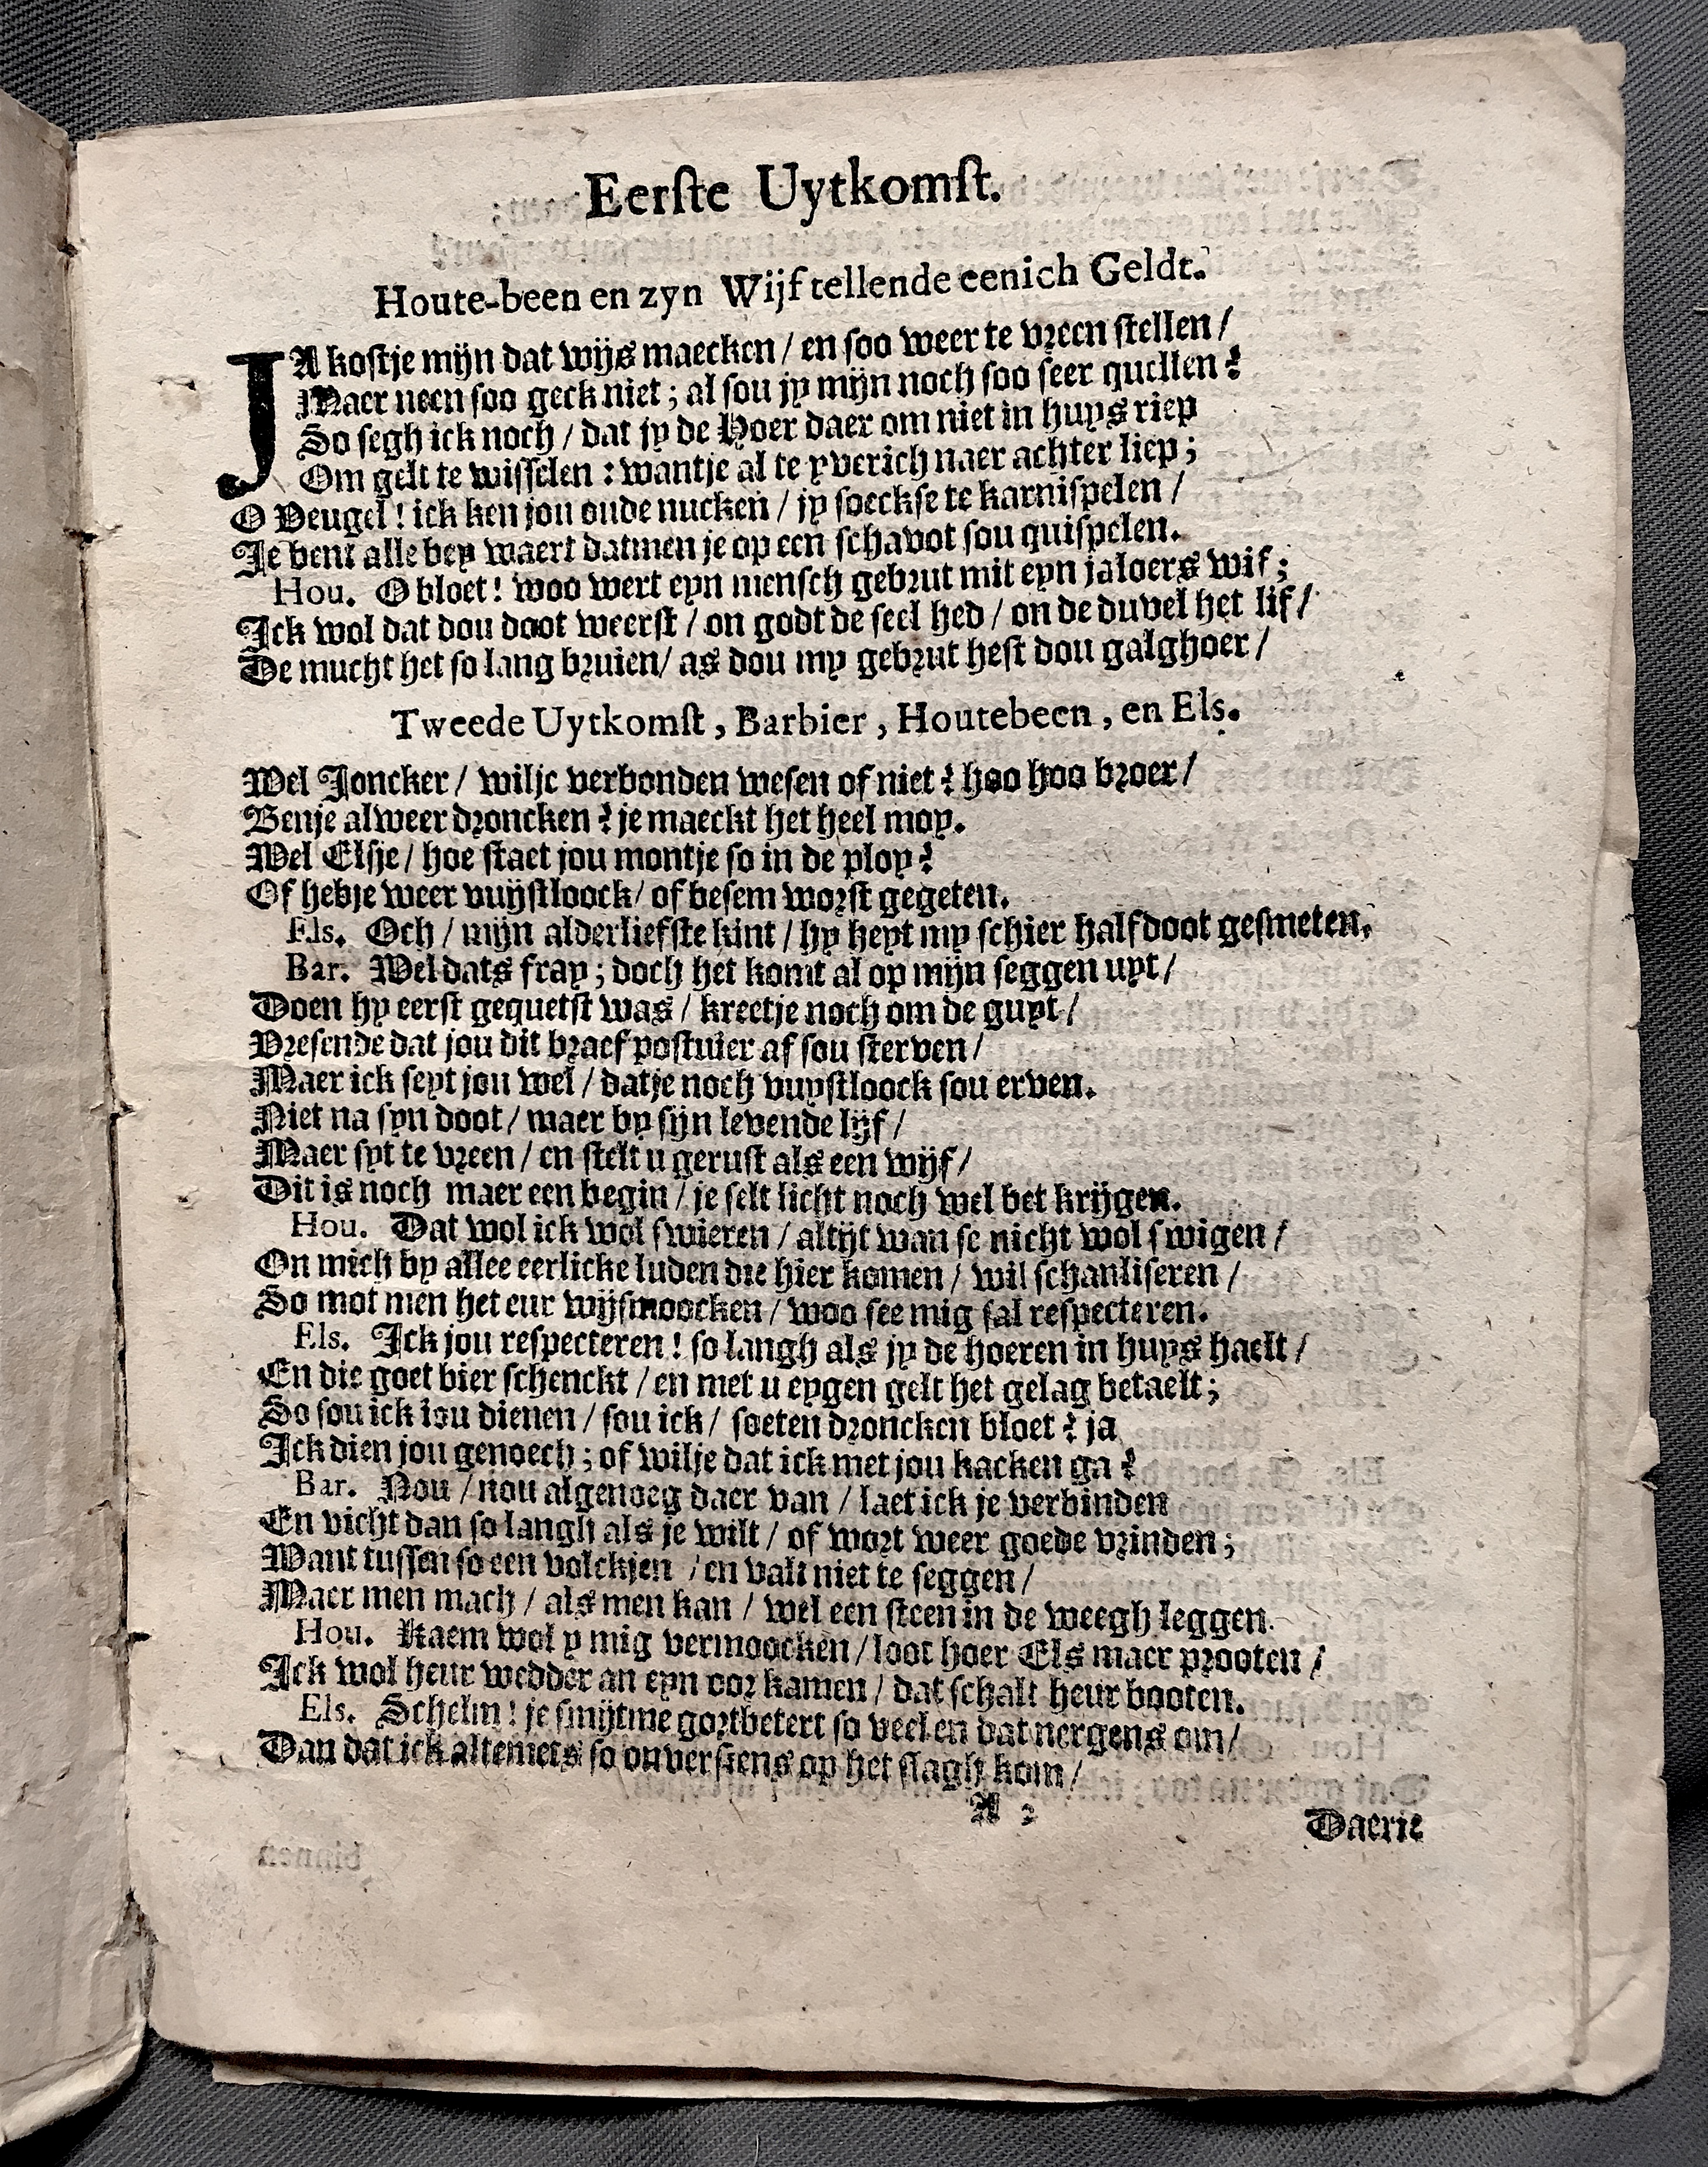 Eerſte Uytkomſt.
Houte-been en zyn Wijf tellende eenich Geldt.
JA koſtje mijn dat wijs maecken / en ſoo weer te vreen ſtellen /
Maer neen ſoo geck niet ; al ſou jy mijn noch ſoo ſeer quellen ?
So ſegh ick noch / dat jy de Hoer daer om niet in huys riep
Om gelt te wiſſelen : wantje al te yverich naer achter liep ;
O Deugel ! ick ken jou oude nucken / jy ſoeckſe te karniſpelen /
Je bent alle bey waert datmen je op een ſchavot ſou quiſpelen.
Hou. O bloet ! woo wert eyn menſch gebrut mit eyn jaloers wif ;
Ick wol dat dou doot weerſt / on godt de ſeel hed / on de duvel het lif /
De mucht het ſo lang bruien / as dou my gebrut heſt dou galghoer /
Tweede Uytkomſt , Barbier , Houtebeen , en Els.
Wel Joncker / wilje verbonden weſen of niet ? hoo hoo broer /
Benje alweer droncken ? je maeckt het heel moy.
Wel Elſje / hoe ſtaet jou montje ſo in de ploy ?
Of hebje weer vuijſtloock / of beſem worſt gegeten.
Els. Och / mijn alderliefſte kint / hy heyt my ſchier half doot geſmeten,
Bar. Wel dats fray ; doch het komt al op mijn ſeggen uyt /
Doen hy eerſt gequetſt was / kreetje noch om de guyt /
Vreſende dat jou dit braef poſtuier af ſou ſterven /
Maer ick ſeyt jou wel / datje noch vuyſtloock ſou erven.
Niet na ſyn doot / maer by ſijn levende lijf /
Maer ſyt te vreen / en ſtelt u geruſt als een wijf /
Dit is noch maer een begin / je ſelt licht noch wel bet krijgen.
Hou. Dat wol ick wol ſwieren / altijt wan ſe nicht wol ſwigen /
On mich by allee eerlicke luden die hier komen / wil ſchanliſeren /
So mot men het eur wijſmoocken / woo ſee mig ſal reſpecteren.
Els. Ick jou reſpecteren ! ſo langh als jy de hoeren in huys haelt /
En die goet bier ſchenckt / en met u eygen gelt het gelag betaelt ;
So ſou ick jou dienen / ſou ick / ſoeten droncken bloet ? ja
Ick dien jou genoech ; of wilje dat ick met jou kacken ga ?
Bar. Nou / nou algenoeg daer van / laet ick je verbinden
En vicht dan ſo langh als je wilt / of wort weer goede vrinden ;
Want tuſſen ſo een volckjen / en valt niet te ſeggen /
Maer men mach / als men kan / wel een ſteen in de weegh leggen.
Hou. Kaem wol y mig vermoocken / loot hoer Els maer prooten /
Ick wol heur wedder an eyn oor kamen / dat ſchalt heur booten.
Els. Schelm ! je ſmijtme gortbetert ſo veel en dat nergens om /
Dan dat ick altemets ſo onverſiens op het ſlagh kom /
A 2
Daerje